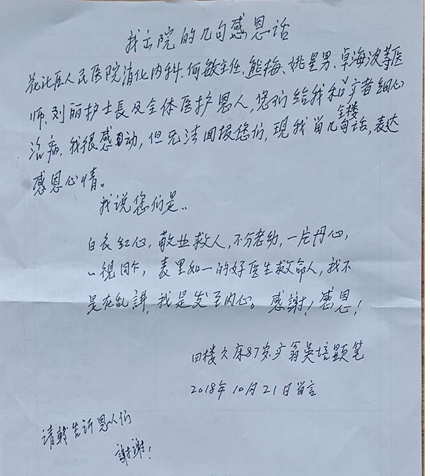 我出院的几句感恩话
花北区人民医院消化内科,何敏主任,熊梅、姚星男、卓海波等医
师,刘丽护士長及全体医护恩人,您们给我和全楼患者细心
治病,我很感动,但无法回报您们,现我留几句话,表达
感恩心情。
我说您们是..
白衣红心,敬业救人,不分老幼,一片丹心,
一視同仁,表里如一的好医生救命人,我不
是在乱講,我是发至内心。感謝!感恩!
四楼久床87岁
2018年10月21日留言
請轉告訴恩人们
謝謝!